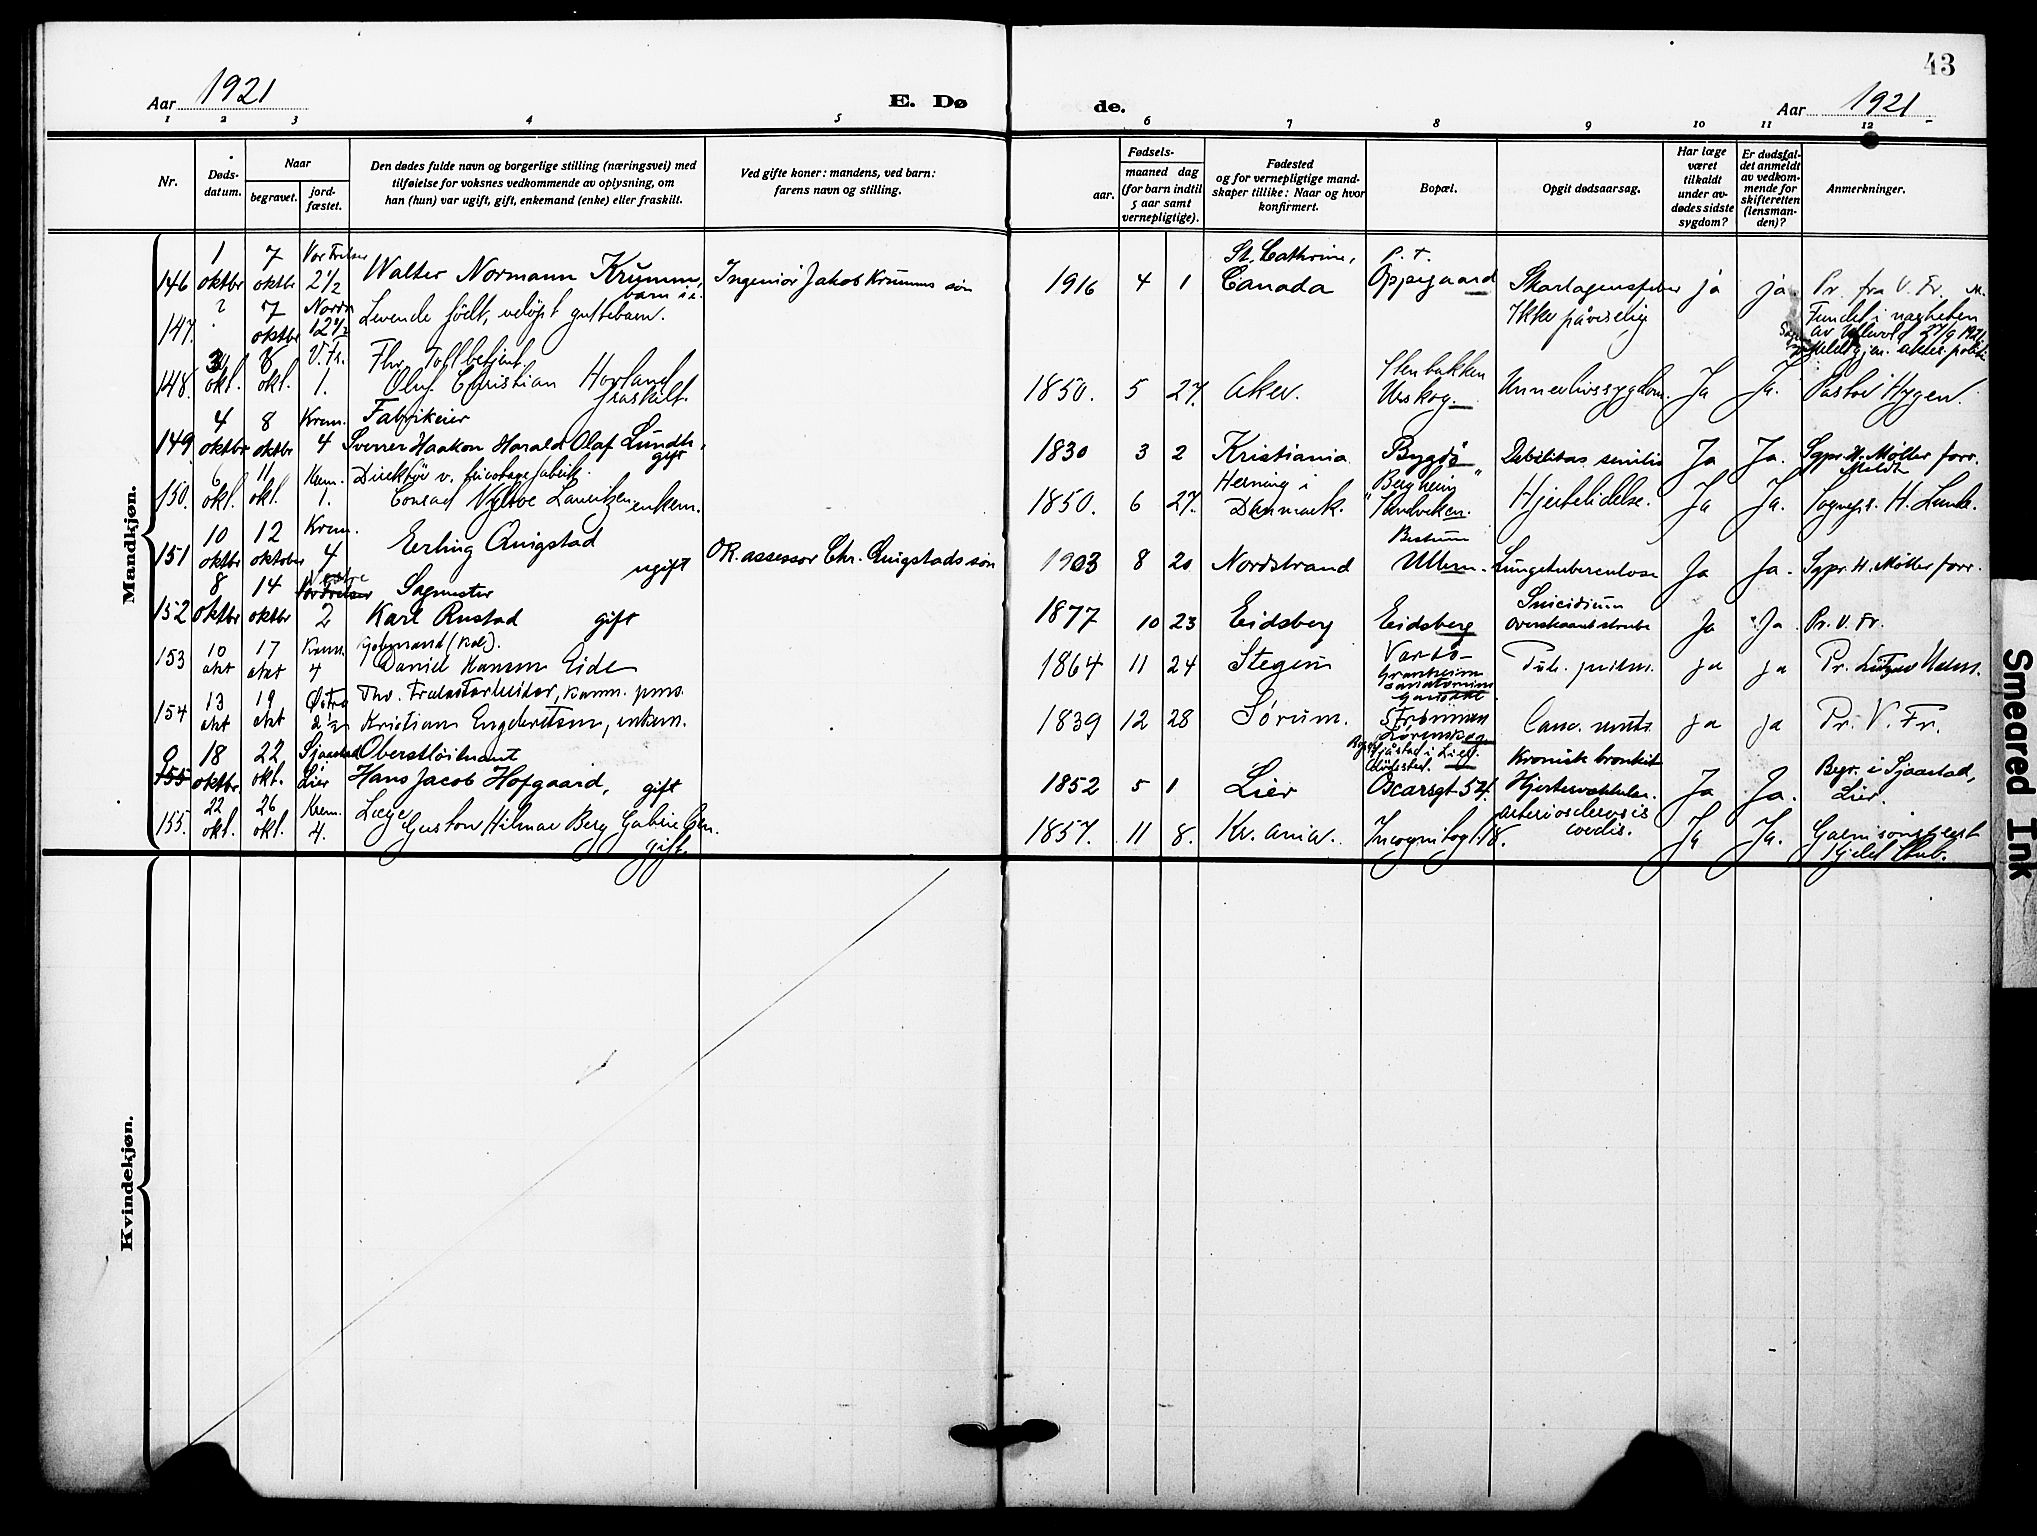 43
Aar 1921
E. Dø
de.
Aar 1921
1 2 3 4 5 6 7 8 9 10 11 12
Nr.
Døds-
datum.
Naar
begravet.
jord-
fæstet.
Den dødes fulde navn og borgerlige stilling (næringsvei) med
tilføielse for voksnes vedkommende av oplysning, om
han (hun) var ugift, gift, enkemand (enke) eller fraskilt.
Ved gifte koner: mandens, ved barn:
farens navn og stilling.
Fødsels-
aar.
maaned dag
(for barn indtil
5 aar samt
vernepligtige).
Fødested
og for vernepligtige mand-
skaper tillike: Naar og hvor
konfirmert.
Bopæl.
Opgit dødsaarsag.
Har læge
været
tilkaldt
under av-
dødes sidste
sygdom?
Er dødsfal-
det anmeldt
av vedkom-
mende for
skifteretten
(lensman-
den)?
Anmerkninger.
Mandkjøn.
146 1 oktbr 7 oktbr Vor Frelser 2 1/2 Walter Normann Krumm, barn Ingeniør Jakob Krumms søn 1916 4 1 St. Cathrine, Canada p. t. Oppegaard Skarlagensfeber ja ja Pr. fra V. Fr.
147. ? 7 oktbr Nordre 12 1/2 Levende født, guttebarn. Ikke påviselig Fundet i nærheten av Ullevold 27/9 1921
148. 3 okt. 8 okt. V. Fr. 1. Fhv. Tollbetjent Oluf Christian Hovland fraskilt 1850. 5 27. Aker. Stenbakken Urskog. Ja Ja. Pastor Hygen.
149 4 oktbr 8 oktbr Krem. 4 Fabrikeier Sverre Haakon Harald Olaf Lundh, gift 1830 3 2 Kristiania Bygdø Debilitas senilis Ja Ja. Sgpr. H. Møller forr.
150. 6 okt. 11 okt. Krem. 1. Direktør v. tricotagefabrik. Conrad Lauritzen enkem. 1850. 6 27. Herning i Danmark. "Bergheim" Sandviken. Hjertelidelse. Ja Ja. Sognepr. H. Lunde.
151 10 oktbr 12 oktober Krem. 4 Erling Qvigstad ugift OR. assessor Chr. Qvigstads søn 1903 8 20 Nordstrand Bestum Ullern. Lungetuberculose Ja Ja. Sgpr. H. Møller forr.
152 8 oktbr 14 oktbr Vestre 2 Sagmester Karl Rustad gift 1877 10 23 Eidsberg Eidsberg Suicidium Overskaaret strube Ja Ja. Pr. V. Fr.
153 10 okt 17 okt Krem. 4 Daniel Hansen Eide 1864 11 24 Stegen Vardø Granheim sanatorium Gausdal Tub. pulm. ja ja Pr.
154 13 okt 19 okt Østre 2 1/2 Fhv. Trælastarbeider, Kristian Engebretsen, enkem. 1839 12 28 Sørum. Strømmen Lørenskog Canc. ja ja Pr. V. Fr.
155 18 oktbr. 22 okt. Sjaastad Lier Oberstløitnant Hans Jacob Hofgaard, gift 1852 5 1 Lier Sjåstad i Lier. Dødssted. Oscarsgt 54. Kronisk bronkit Ja Ja. Begr. i Sjaastad, Lier.
155. 22 okt. 26 okt. Krem. 4. Læge Gustav Hilmar Berg Gabrielsen. gift. 1857. 11 8. Kr.ania. Incognitogt. 18. arteriosclerosis cordis. Ja Ja. Garnisonsprest Kjeld Stub.
Kvindekjøn.
Smeared Ink